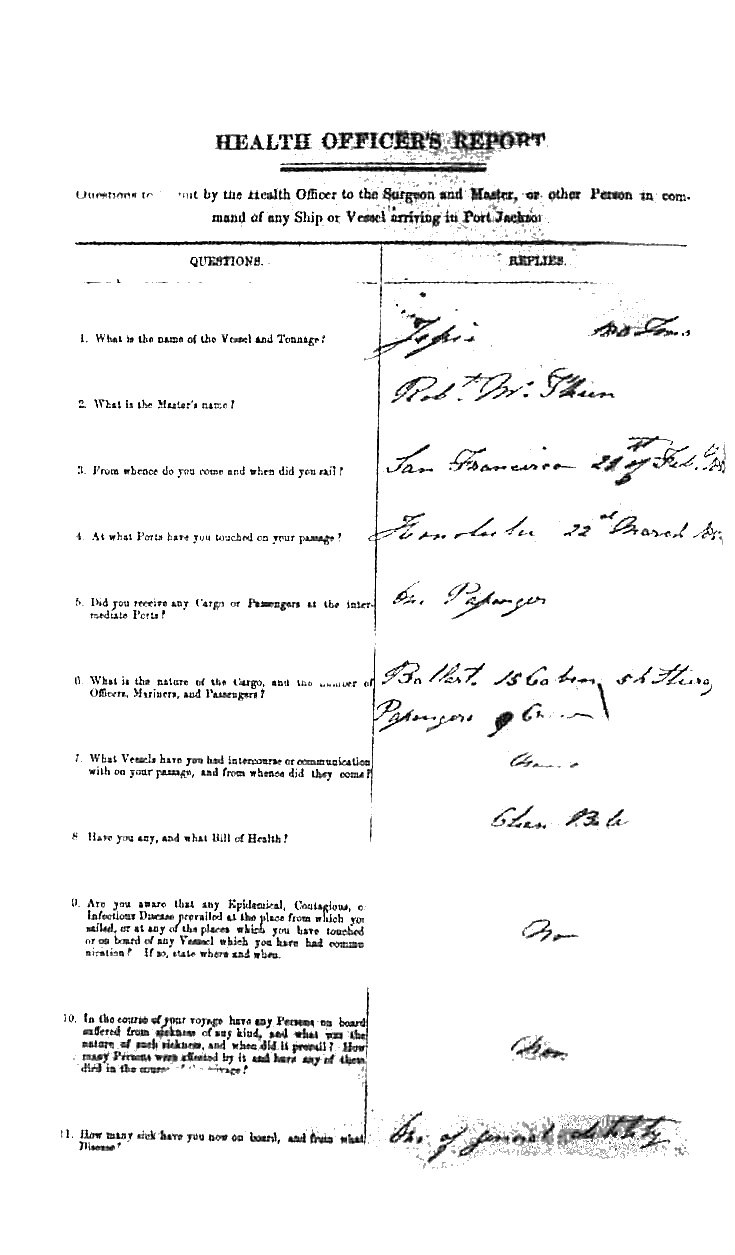 HEALTH OFFICER'S REPORT
Questions to by the Health Officer to the Surgeon and Master, or other Person in com-
mand of any Ship or Vessel arriving in Port Jackson
QUESTIONS.
REPLIES.
1. What is the name of the Vessel and Tonnage?
Tons
2. What is the Master's name?
Robt. Mc
3. From whence do you come and when did you sail?
San Francisco 21st of Feb.
4. At what Ports have you touched on your passage?
Honolulu 22nd March
5. Did you receive any Cargo or Passengers at the inter-
mediate Ports?
One Passenger
6. What is the nature of the Cargo, and the number of
Officers, Mariners, and Passengers?
Ballast. 15 Cabin, 54
Passengers
7. What Vessels have you had intercourse or communication
with on your passage, and from whence did they come?
None
8. Have you any, and what Bill of Health?
Clean Bill
9. Are you aware that any Epidemical, Contagious, o
Infectious Disease prevailed at the place from which you
sailed, or at any of the places which you have touched
or on board of any Vessel which you have had commu
nication? If so, state where and when.
No
10. In the course of your voyage have any Persons on board
suffered from sickness of any kind, and what was the
nature of such sickness, and when did it prevail? How
many Persons were affected by it and have any of them
died in the course of the voyage?
11. How many sick have you now on board, and from what
Disease?
One of general debility